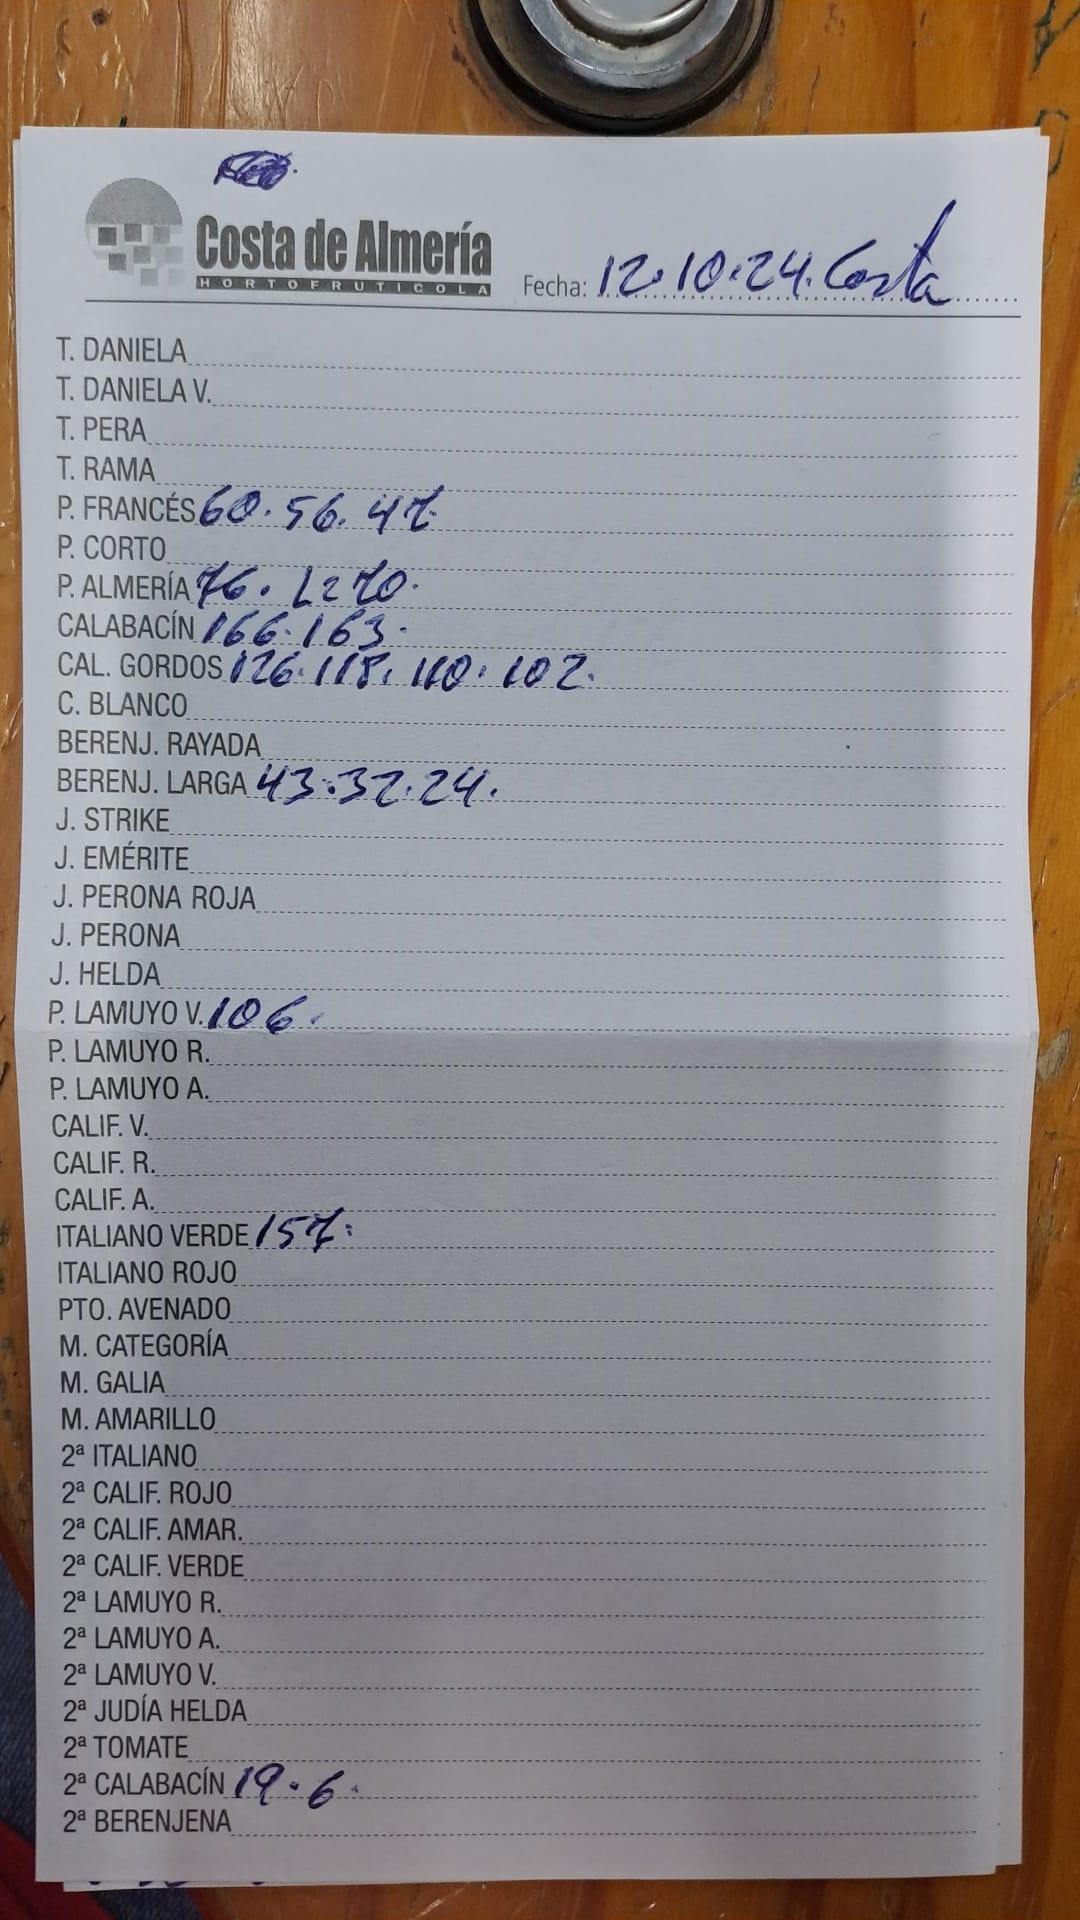 Costa de Almería
HORTOFRUTICOLA
Fecha: 12.10.24. Costa
T. DANIELA
T. DANIELA V.
T. PERA
T. RAMA
P. FRANCÉS 60. 56. 47.
P. CORTO
P. ALMERÍA 76. L=70.
CALABACÍN 166. 163.
CAL. GORDOS 126. 118. 110. 102.
C. BLANCO
BERENJ. RAYADA
BERENJ. LARGA 43. 32. 24.
J. STRIKE
J. EMÉRITE
J. PERONA ROJA
J. PERONA
J. HELDA
P. LAMUYO V. 106.
P. LAMUYO R.
P. LAMUYO A.
CALIF. V.
CALIF. R.
CALIF. A.
ITALIANO VERDE 157.
ITALIANO ROJO
PTO. AVENADO
M. CATEGORÍA
M. GALIA
M. AMARILLO
2ª ITALIANO
2ª CALIF. ROJO
2ª CALIF. AMAR.
2ª CALIF. VERDE
2ª LAMUYO R.
2ª LAMUYO A.
2ª LAMUYO V.
2ª JUDÍA HELDA
2ª TOMATE
2ª CALABACÍN 19. 6.
2ª BERENJENA